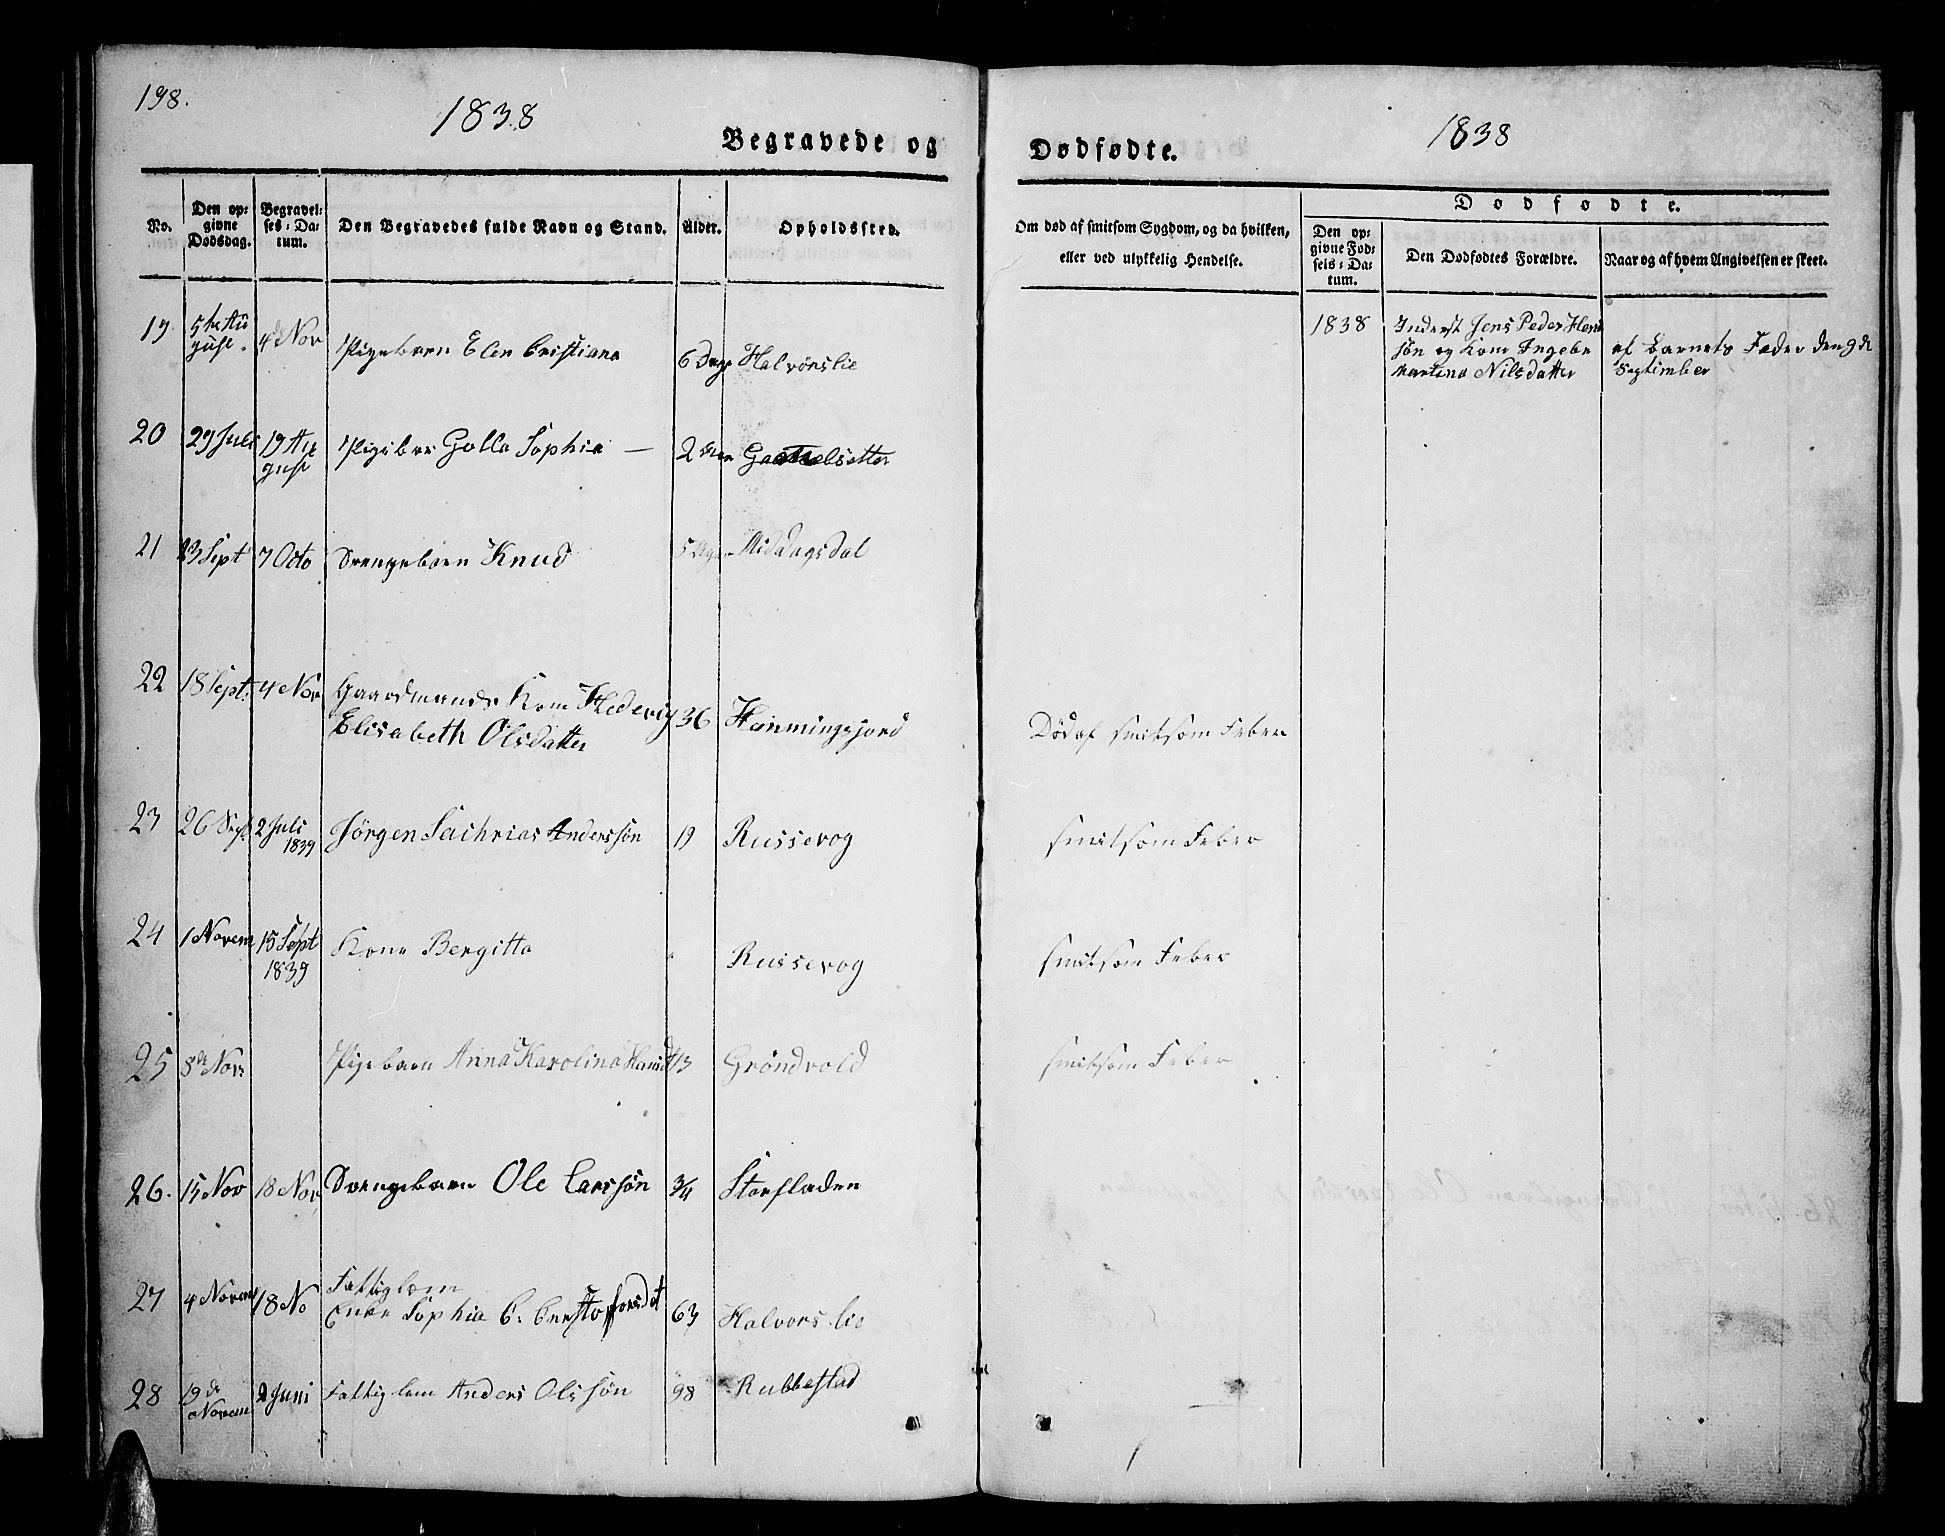 198.
1838
Begravede og
No.
Den op-
givne
Dødsdag.
Begravel-
ses-Da-
tum.
Den Begravedes fulde Navn og Stand.
Alder.
Opholdssted.
19 5te Au 4de Nov Pigebarn Elen Cristiana 6 Dage Halvorslie
gust.
20 29 Juli 19 Au Pigebar Golla Sophia — 2
gust
21 23 Sept 7 Octo Drengebarn Knud 5 Middagsdal
22 18 Sept. 4 Nov Gaardmands Kone Hedevig 36
Elisabeth Olsdatter
23 26 Sept 2 Juli Jörgen Sachrias Anderssön 19 Russevog
1839
24 1 Novem 15 Sept Kone Bergitta Russevog
1839
25 8de Nov. Pigebarn Anna Karolina 13 Gröndvold
26. 15 Nov 18 Nov Drengebarn Ole Larssön 3/4 Storfladen
Fattiglem
27 4 Novem 18 No Enke Sophia C. 63 Halvorslie
28 19de 2 Juni Fattiglem Anders Olssön 98 Rubbestad
Novem
1838
Dødfødte.
Om død af smitsom Sygdom, og da hvilken,
eller ved ulykkelig Hendelse.
Dødfødte.
Den op-
givne Fød-
sels-Da-
tum.
Den Dødfødtes Forældre.
Naar og af hvem Angivelsen er skeet.
1838 Inderst Jens Peder Hen
sön og Kone Ingebe af Barnets Fader den 9de
Martina Nilsdatter September
Död af smitsom Feber
smitsom Feber
smitsom Feber
smitsom Feber